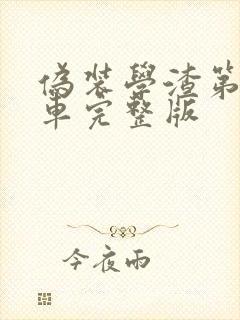 偽装學渣第
車完整版
今夜雨